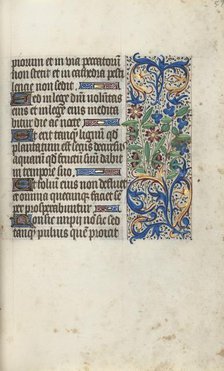 piorum et in via peccatorū
non stetit et in cathedra pesti
lence non sedit.
Sed in lege dn̄i voluntas
eius et in lege eius medita
bitur die ac nocte.
Et erit tanq̄ lignū qd̄
plantatum est secus decursꝯ
aquarū qd̄ fructū suū dabit
in tempore suo.
Et foliū eius non defluet
et omnia quecunq̄ faciet ꝓs
per prosperabuntur
Non sic impii nō sic sed
tanq̄ pulvis quē proicit